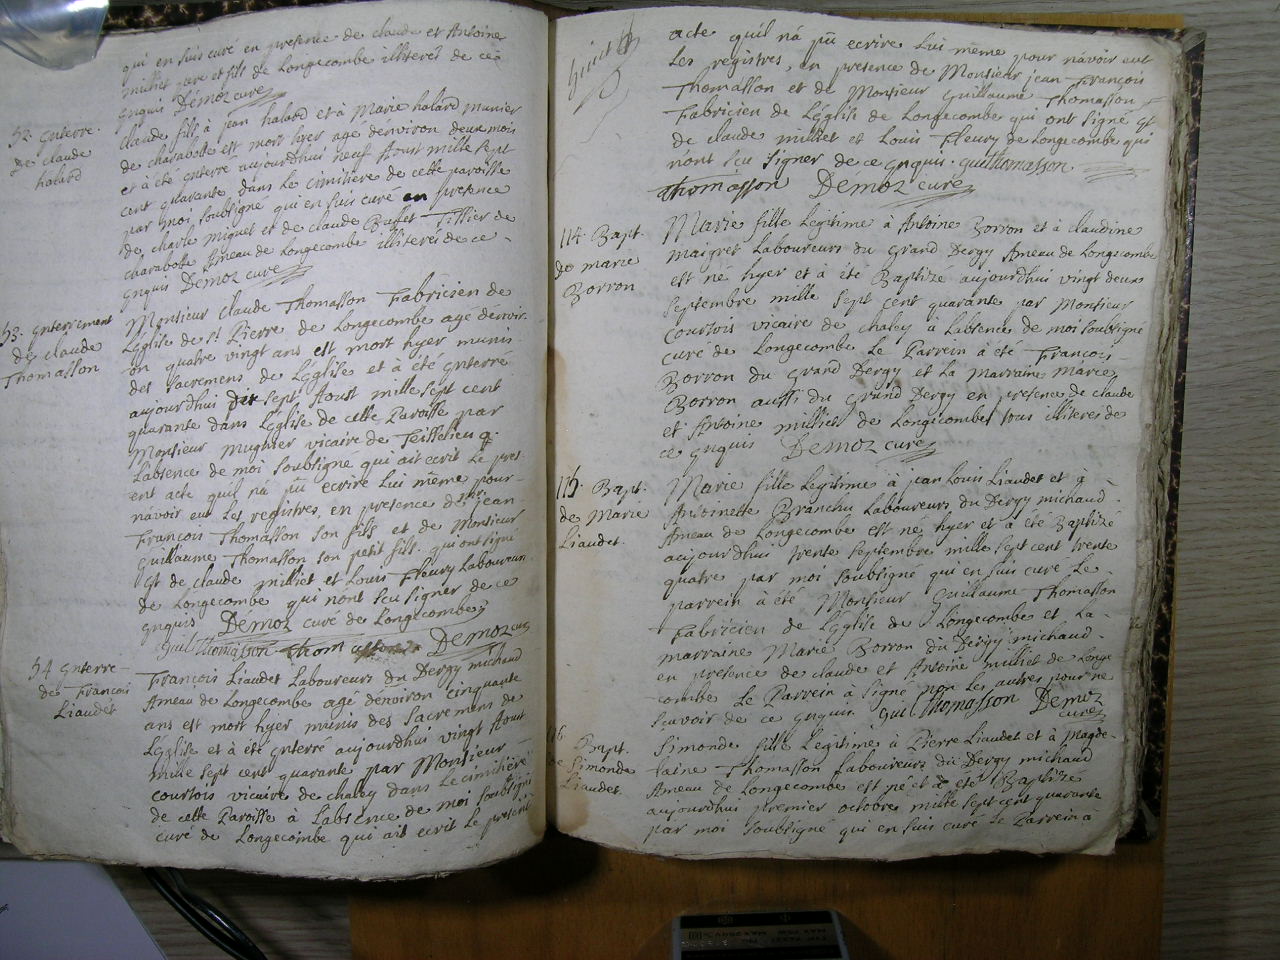 qui en suis curé en presence de claude et Antoine
milliet pere et fils de Longecombe illiterés de ce
gnquis Démoz curé
52. Gnterre.
de claude
halard
claude fils à jean halard et à Marie halard munier
de charabotte est mort hyer age denviron deux mois
et à été gnterré aujourdhui neuf Aoust mille sept
cent quarante dans le cimitiere de cette paroisse
par moi soubsigné qui en suis curé en presence
de charle miguet et de claude Buffet Tissier de
charabotte Ameau de Longecombe illiterés de ce
gnquis Demoz curé
53. gnterrement
de claude
Thomasson
Monsieur claude Thomasson Fabricien de
LEglise de st Pierre de Longecombe agé denvir-
on quatre vingt ans est mort hyer munis
des sacremens de LEglise et à été gnterré
aujourdhui dix sept Aoust mille sept cent
quarante dans LEglise de cette Paroisse par
Monsieur vicaire de
Labsence de moi soubsigné qui ait ecrit Le pres-
ent acte quil ná pû ecrire Lui meme pour
návoir eut Les registres, en presence de sr. jean
François Thomasson son fils et de Monsieur
Guillaume Thomasson son petit fils. qui ont signé
Gt de claude milliet et Louis Fleury Laboureurs
de Longecombe qui nont sçu signer de ce
gnquis Demoz curé de Longecombe
guil Thomasson Thomasson Demoz curé
54 Gnterre
de François
Liaudet
François Liaudet Laboureurs du Dergy michaud
Ameau de Longecombe agé dénviron cinquante
ans est mort hyer munis des Sacremens de
LEglise et à été gnterré aujourdhui vingt Aoust
mille sept cent quarante par Monsieur
courtois vicaire de chaley dans le cimitiere
de cette Paroisse à Labsence de moi soubsigné
curé de Longecombe qui ait ecrit Le present
acte quil ná pû ecrire Lui même pour návoir eut
Les registres, en presence de Monsieur jean François
Thomasson et de Monsieur Guillaume Thomasson
Fabricien de LEglise de Longecombe qui ont signé Gt
de claude milliet et Louis Fleury de Longecombe qui
nont sçu signer de ce gnquis. guil Thomasson
Thomasson Démoz curé
114 Bapt.
de marie
Borron
Marie fille Legitime à Antoine Borron et à claudine
maigret Laboureurs du Grand Dergy Ameau de Longecombe
est né hyer et à été Baptizé aujourdhui vingt deux
septembre mille sept cent quarante par Monsieur
Courtois vicaire de chaley à Labsence de moi soubsigné
curé de Longecombe Le Parrein à été François
Borron du Grand Dergy et La marraine Marie
Borron aussi du Grand Dergy en presence de claude
et Antoine milliet de Longecombe tous illiterés de
ce gnquis Demoz curé
115. Bapt.
de Marie
Liaudet.
Marie fille Legitime à jean Louis Liaudet et à
Antoinette Branchu Laboureurs du Dergy michaud
Ameau de Longecombe est né hyer et à été Baptizé
aujourdhui trente septembre mille sept cent trente
quatre par moi soubsigné qui en suis curé Le
parrein à été Monsieur Guillaume Thomasson
Fabricien de LEglise de Longecombe et La
marraine Marie Borron du Dergy michaud
en presence de claude et Antoine milliet de Longe
combe Le Parrein à signé non Les autres pour ne
sçavoir de ce gnquis. guil Thomasson Demoz
curé
116. Bapt.
de Simonde
Liaudet.
Simonde fille Legitime à Pierre Liaudet et à Magde-
laine Thomasson Laboureurs du Dergy michaud
Ameau de Longecombe est né et à été Baptizé
aujourdhui premier octobre mille sept cent quarante
par moi soubsigné qui en suis curé Le Parrein à